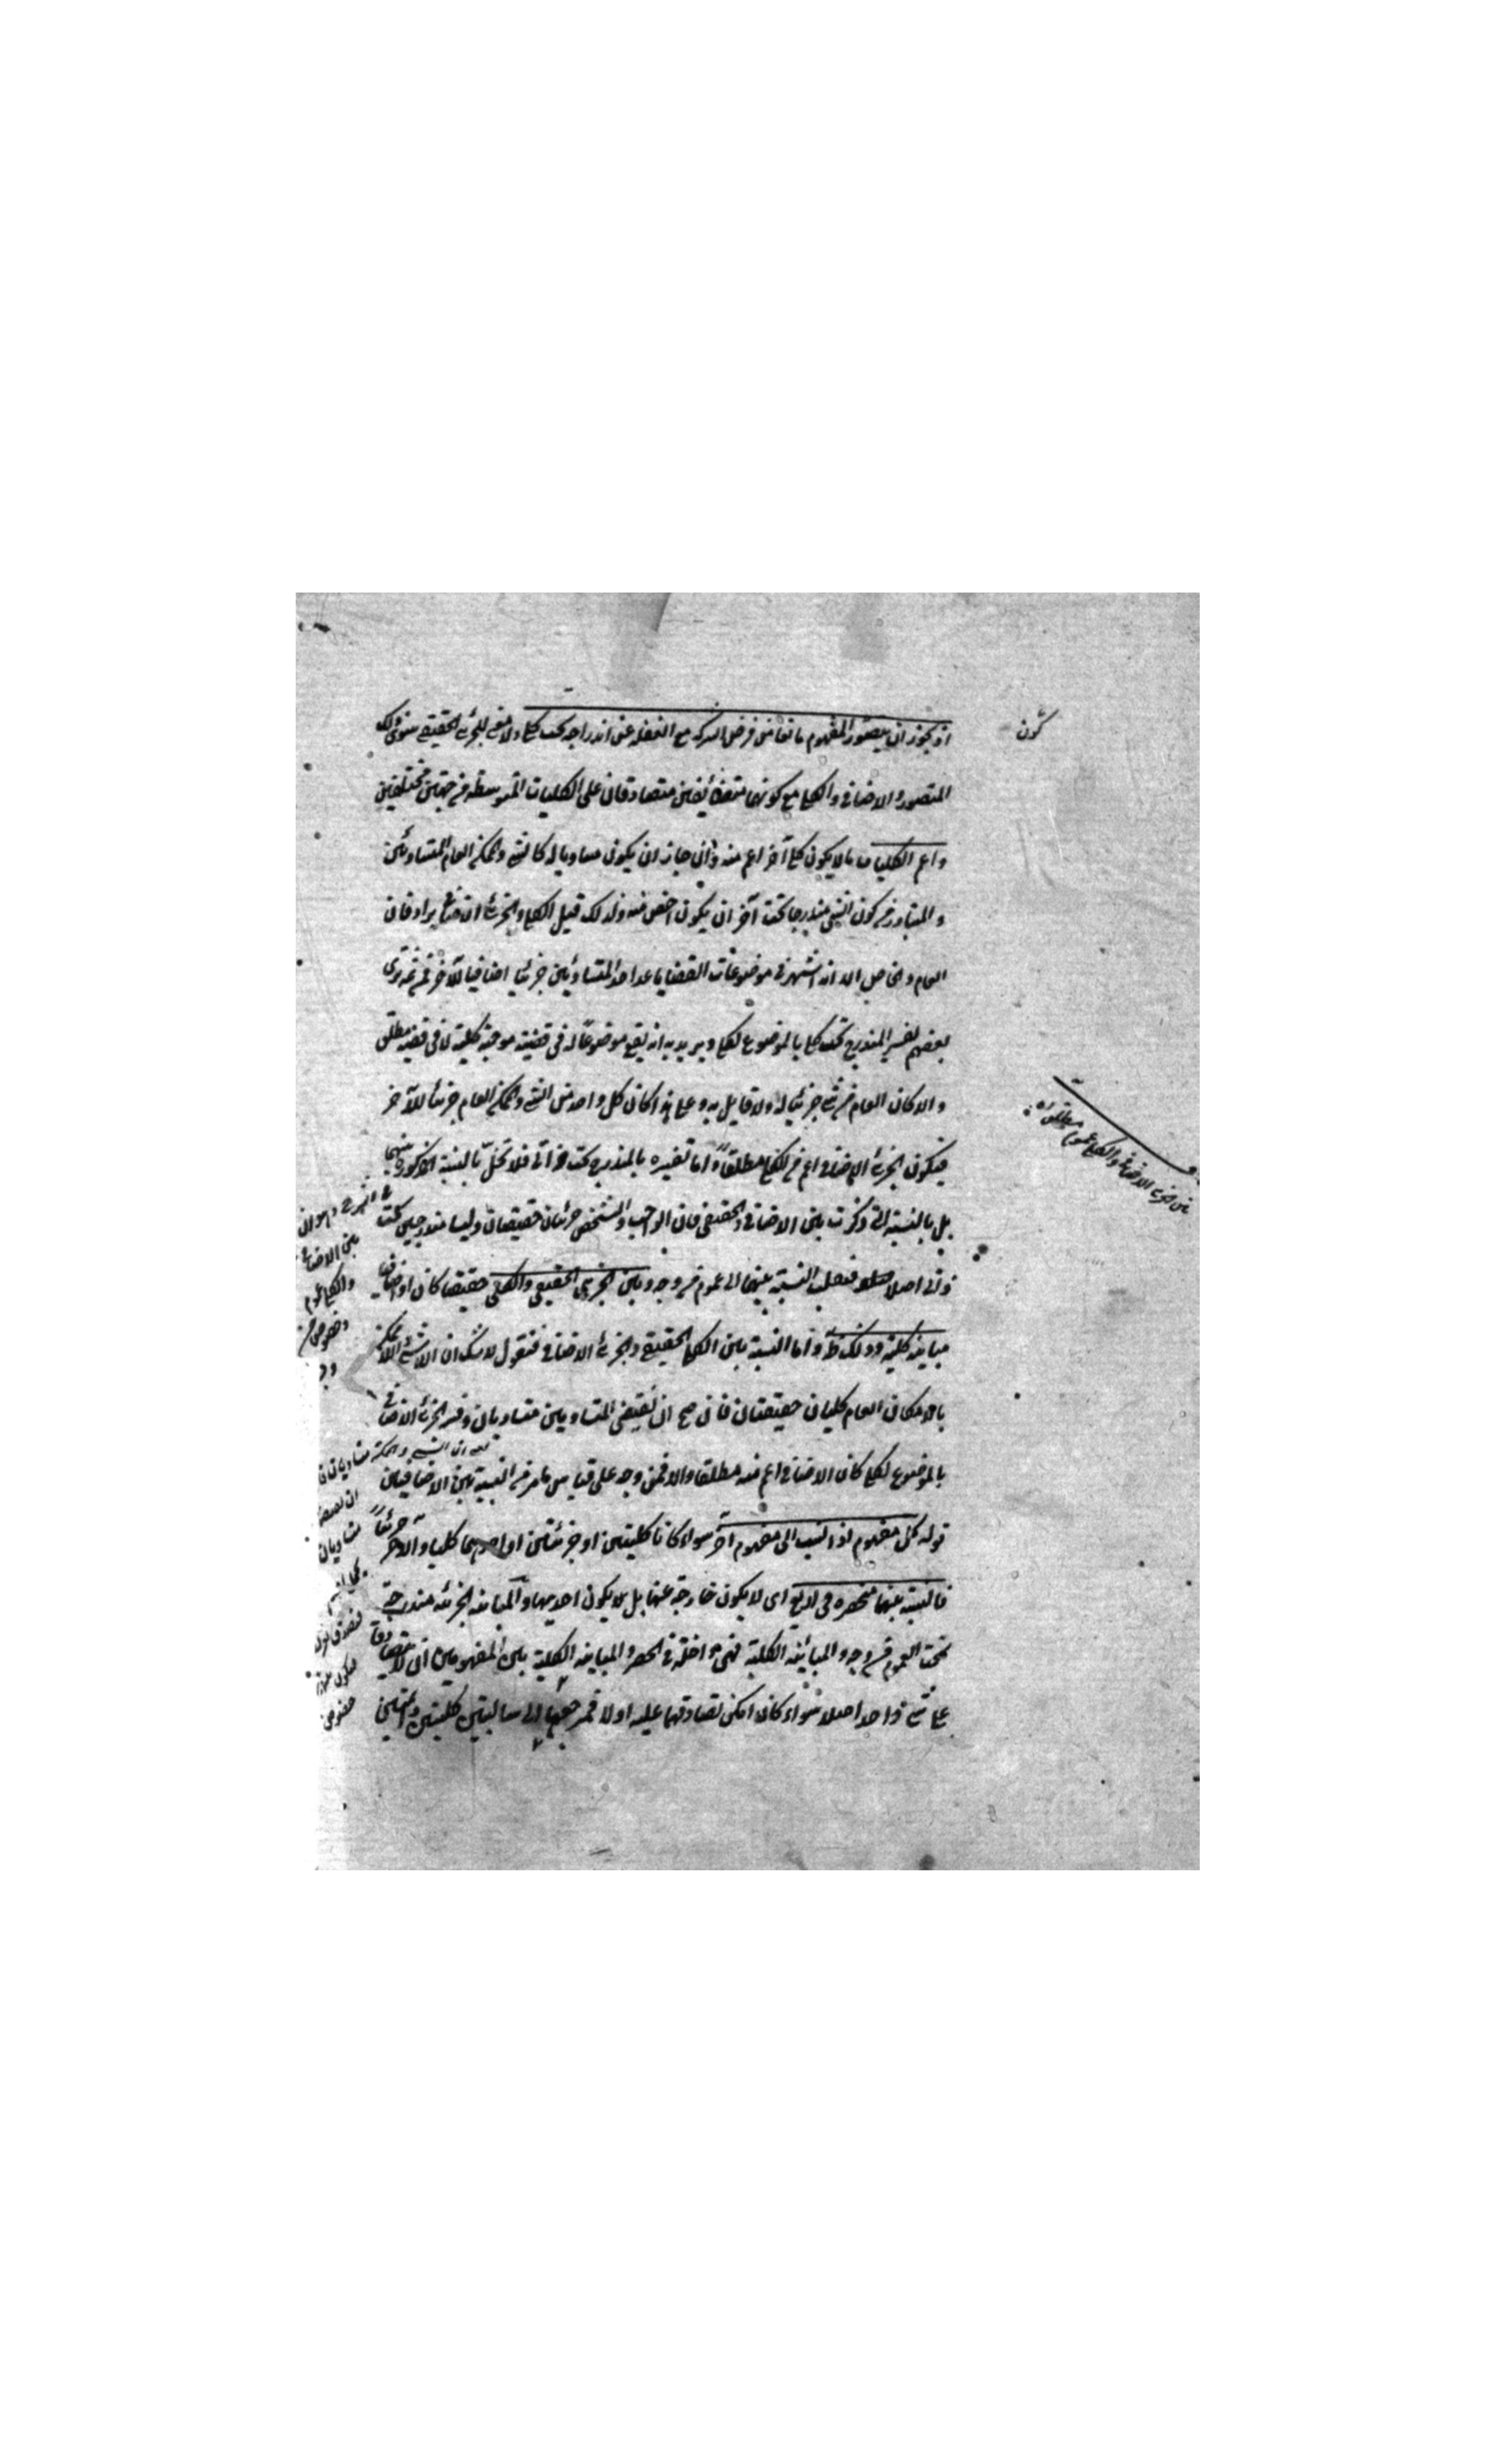 اذ يجوز ان يتصور المفهوم مانعا من فرض الشركة مع الغفلة عن اندراجه تحت كلي ولا معنى للجزئي الحقيقي سوى ذلك
المتصور والاضافي والكلي مع كونهما متضائفين متصادقان على الكليات المتوسطة من جهتين مختلفتين
واعم الكليات ما لا يكون كلي آخر اعم منه وان جاز ان يكون مساويا له كالشي والممكن العام المتساويين
والمتبادر من كون الشي مندرجا تحت آخر ان يكون اخص منه ولذلك قيل الكلي والجزئي الاضافي يرادفان
العام والخاص الا انه اشتهر في موضوعات القضايا عد احد المتساويين جزئيا اضافيا للآخر فمن ثمه ترى
بعضهم يفسر المندرج تحت كلي بالموضوع لكلي ويريد به انه يقع موضوعا له في قضية موجبة كلية لا في قضية مطلق
والا كان العام من شي جزئيا له ولا قايل به وعلى هذا كان كل واحد من الشي والممكن العام جزئيا للآخر
فيكون الجزئي الاضافي اعم من الكلي مطلقا واما تفسيره بالمندرج تحت ذاتي فلا تخل بالنسبة المذكورة بينهما
بل بالنسبة التي ذكرت بين الاضافي والحقيقي فان الواجب والتشخص جزئيان حقيقيان وليسا مندرجين تحت
ذاتي اصلا فتنقلب النسبة بينهما الى عموم من وجه وبين الجزئي الحقيقي والكلي حقيقيا كان او اضافيا
مباينة كلية وذلك ظ واما النسبة بين الكلي الحقيقي والجزئي الاضافي فنقول لا شك ان اللاشي واللاممكن
بالامكان العام كليان حقيقيان فان صح ان نقيضي المتساويين متساويان وفسر الجزئي الاضافي
بالموضوع لكلي كان الاضافي اعم منه مطلقا والا فمن وجه على قياس ما مر من النسبة بين الاضافيين
قوله كل مفهوم اذا نسب الى مفهوم آخر سواء كانا كليين او جزئيين او احدهما كليا والاخر جزئيا
فالنسبة بينهما منحصرة في اربع اى لا يكون خارجة عنها بل لا يكون احديهما والمباينة الجزئية مندرجة
تحت العموم من وجه والمباينة الكلية فهي داخلة في الحصر والمباينة الكلية بين المفهومين ان لا يتصادقا
على شي واحد اصلا سواء كان امكن تصادقهما عليه او لا فمرجعها الى سالبتين كليتين دائمتين
كون
بين الجزئي الاضافي والكلي عموم مطلقا
بين الاضافي
والكلي عموم
وخصوص من
وجه
متساويان